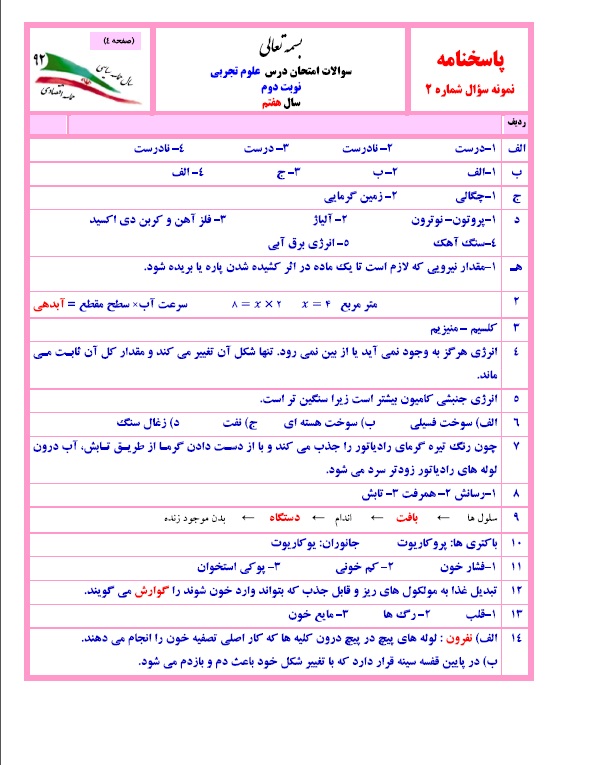 پاسخنامه
نمونه سؤال شماره ۲
بسمه تعالی
سوالات امتحان درس علوم تجربی
نوبت دوم
سال هفتم
(صفحه ٤)
۹۲
سال حماسه سیاسی
حماسه اقتصادی
ردیف
الف ۱-درست ۲- نادرست ۳- درست ٤- نادرست
ب ۱-الف ۲-ب ۳- ج ٤- الف
ج ۱-چگالی ۲- زمین گرمایی
د ۱-پروتون- نوترون ۲- آلیاژ ۳- فلز آهن و کربن دی اکسید
٤-سنگ آهک ٥- انرژی برق آبی
هـ ۱-مقدار نیرویی که لازم است تا یک ماده در اثر کشیده شدن پاره یا بریده شود.
۲ آبدهی = سرعت آب× سطح مقطع ۸ = x × ۲ x = ۴ متر مربع
۳ کلسیم - منیزیم
٤ انرژی هرگز به وجود نمی آید یا از بین نمی رود. تنها شکل آن تغییر می کند و مقدار کل آن ثابت می
ماند.
٥ انرژی جنبشی کامیون بیشتر است زیرا سنگین تر است.
٦ الف) سوخت فسیلی ب) سوخت هسته ای ج) نفت د) زغال سنگ
۷ چون رنگ تیره گرمای رادیاتور را جذب می کند و با از دست دادن گرما از طریق تابش، آب درون
لوله های رادیاتور زودتر سرد می شود.
۸ ۱-رسانش ۲- همرفت ۳- تابش
۹ سلول ها ← بافت ← اندام ← دستگاه ← بدن موجود زنده
۱۰ باکتری ها: پروکاریوت جانوران: یوکاریوت
۱۱ ۱-فشار خون ۲- کم خونی ۳- پوکی استخوان
۱۲ تبدیل غذا به مولکول های ریز و قابل جذب که بتواند وارد خون شوند را گوارش می گویند.
۱۳ ۱-قلب ۲- رگ ها ۳- مایع خون
۱٤ الف) نفرون : لوله های پیچ در پیچ درون کلیه ها که کار اصلی تصفیه خون را انجام می دهند.
ب) در پایین قفسه سینه قرار دارد که با تغییر شکل خود باعث دم و بازدم می شود.